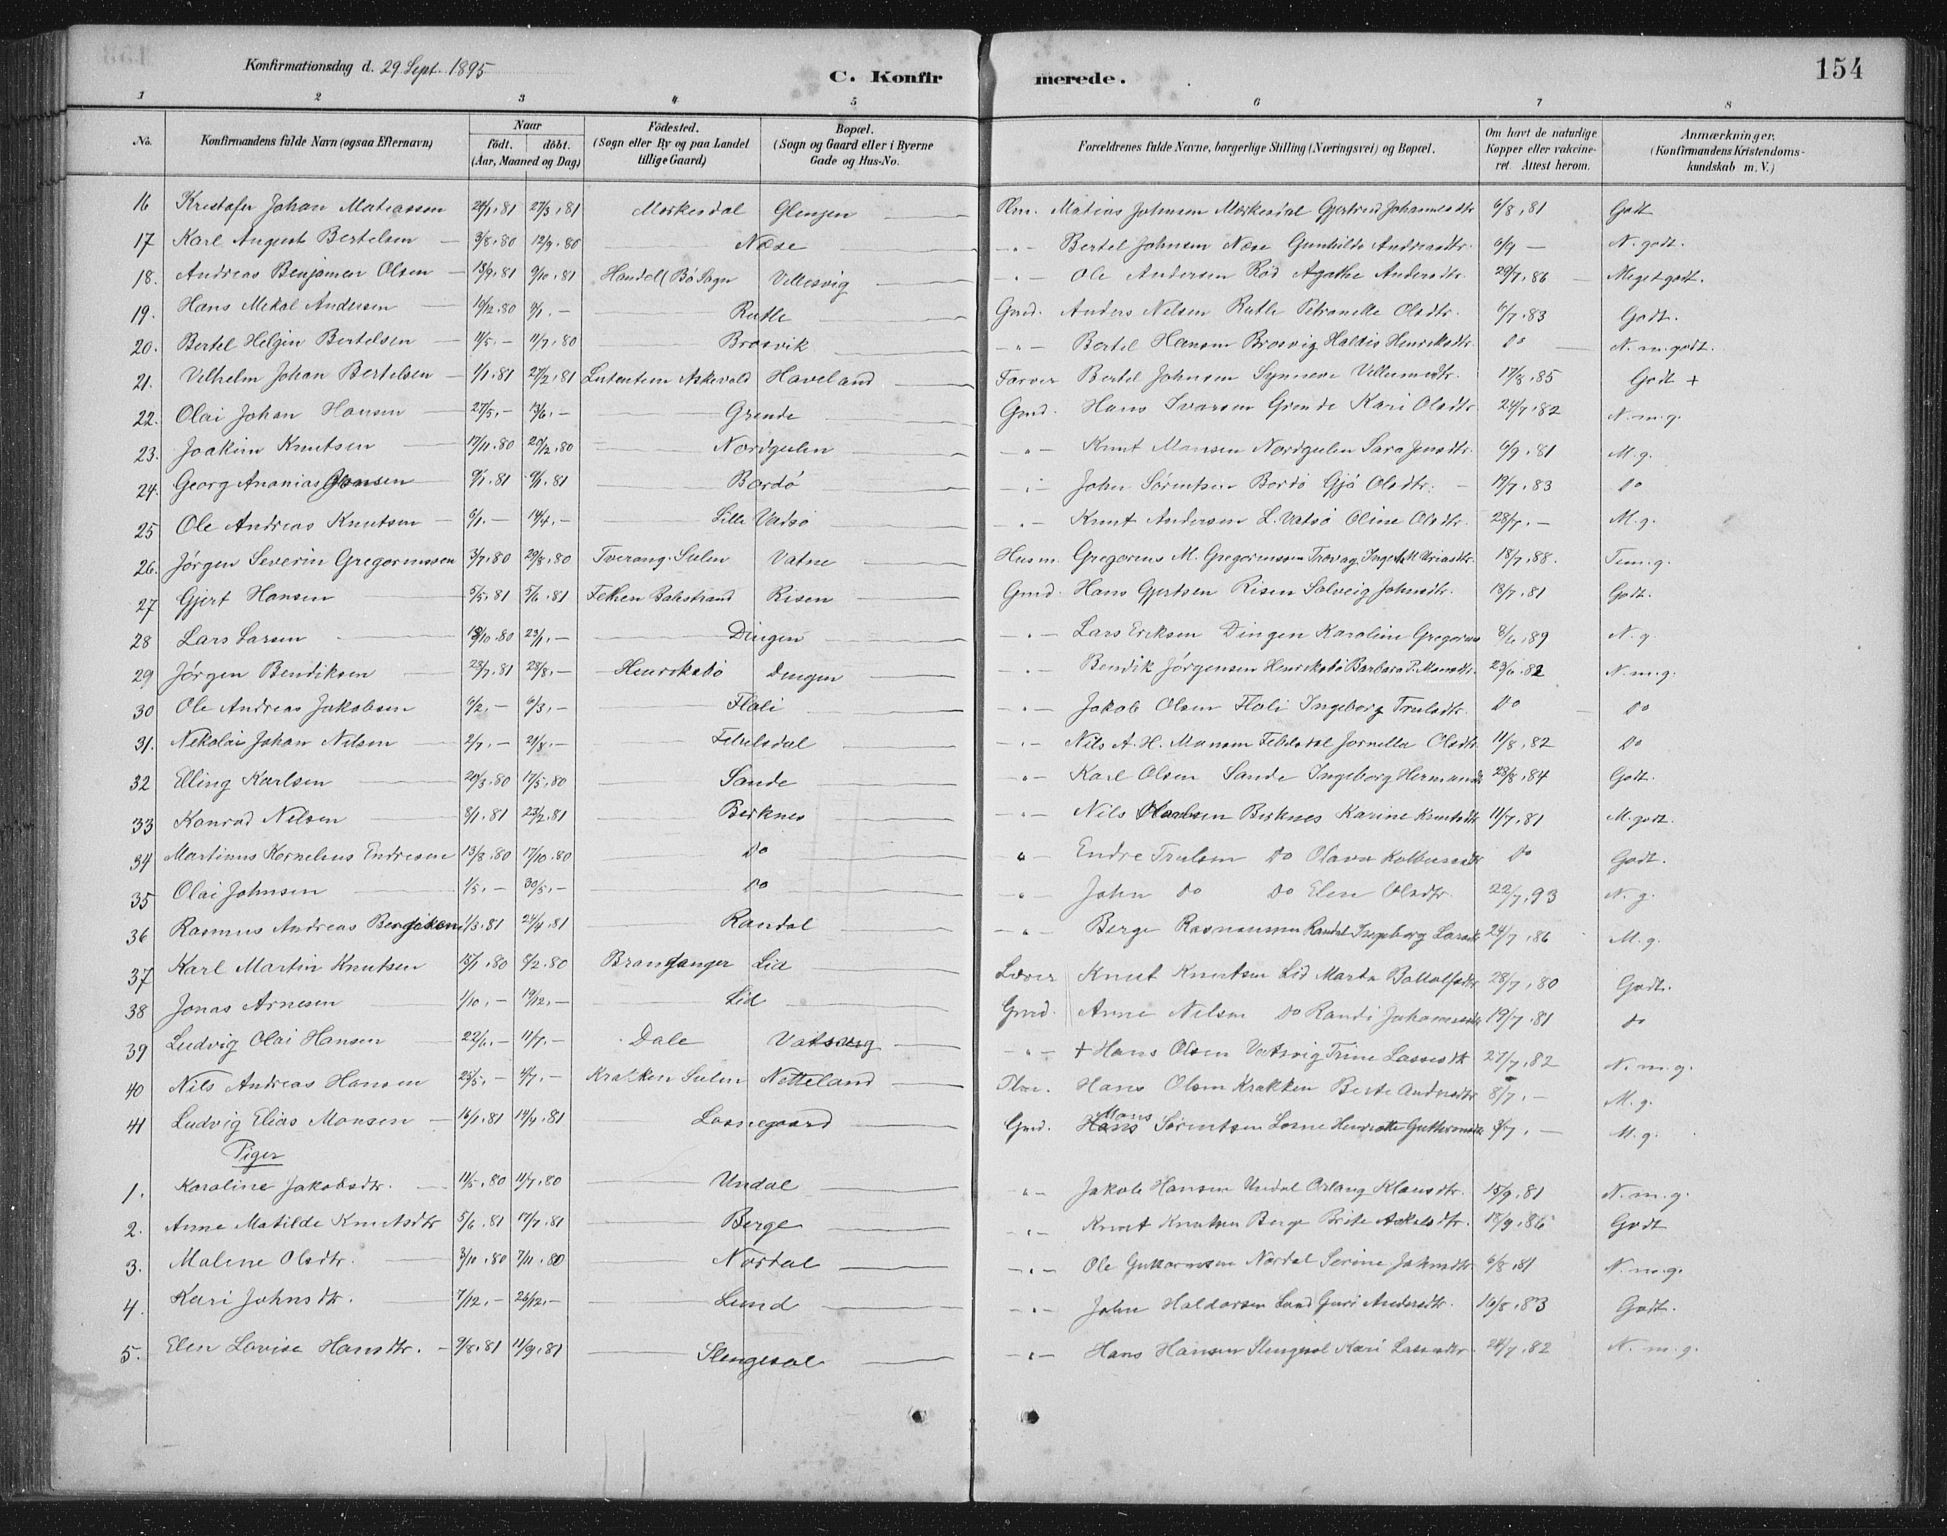 Konfirmationsdag d. 29 Sept. 1895
C. Konfirmerede.
154
1 2 3 4 5 6 7 8
No. Konfirmandens fulde Navn (ogsaa Efternavn) Naar födt. döbt. (Aar, Maaned og Dag) Födested. (Sogn eller By og paa Landet tillige Gaard) Bopæl. (Sogn og Gaard eller i Byerne Gade og Hus-No. Forældrenes fulde Navne, borgerlige Stilling (Næringsvei) og Bopæl. Om havt de naturlige Kopper eller vakcineret. Attest herom. Anmærkninger. (Konfirmandens Kristendomskundskab m. V.)
16 Kristofer Johan Matiassen 27/3,81 Mørkesdal Glenjen Matias Johnsen Mørkesdal Gjertrud Johannesdtr 6/8,81 Godt
17 Karl August Bertelsen 3/8,80 12/9,80 Næse -"- Bertel Johnsen Næse Gunhilde Andreasdtr. 6/9 — N. godt.
18. Andreas Benjamen Olsen 13/9,81 9/10,81 Bø Sogn Villesvig -"- Ole Andersen Rød Agathe Andersdtr. 29/7,86 Meget godt.
19. Hans Mekal Andersen 10/12.80 9/1.— Rutle Gmd. Anders Nilsen Rutle Petronelle Olsdtr. 6/7,83 Godt.
20. Bertel Helgin Bertelsen 11/5.— 11/7,80 Brosvik -"- Bertel Hansen Brosvig Haldis Henriksdtr. Do N. m. godt.
21. Vilhelm Johan Bertelsen 1/1.81 27/2,81 Askevold Haveland Farver Bertel Johnsen Synneve Villumsdtr. 17/8,85 Godt +
22. Olai Johan Hansen 27/5,— 13/6,— Grende Gmd. Hans Ivarsen Grende Kari Olsdtr. 24/7,82 N. m. g.
23. Joakim Knutsen 17/11.80 Nordgulen -"- Knut Monsen Nordgulen Sara Jensdtr. 6/9,81 M. g.
24. Georg Ananias Jonsen 9/1.81 Bordø -"- John Sørentsen Bordø Gjø Olsdtr. 19/7,83 Do
25 Ole Andreas Knutsen 6/1.— 14/4,— Lille Vadsø -"- Knut Andersen L. Vatsø Oline Olsdtr. 28/7.— M. g.
26. Jørgen Severin Gregoriussen 3/7,80 29/8,80 Tverang. Sulen Vatne Husm. Gregorius M. Gregoriussen 18/7,88. Tem. g.
27 Gjert Hansen 5/5,81 5/6,81 Balestrand Risen Gmd. Hans Gjertsen Risen Solveig Johnsdtr. 13/7,81 Godt.
28 Lars Larsen 13/10.80 23/1,— Dingen -"- Lars Eriksen Dingen Karoline Gregorius 8/6,89 N. g
29 Jørgen Bendiksen 23/7,81 28/8,— Henriksbø Dingen -"- Bendik Jørgensen Henriksbø Barbara P. Monsdtr. 23/6.82 N. m. g.
30 Ole Andreas Jakobsen 6/2,— 6/3,— Floli -"- Jakob Olsen Floli Ingeborg Trulsdtr. Do Do
31. Nikolai Johan Nilsen 2/7,— 21/8.— -"- Nils A. H. Monsen Jornilla Olsdtr. 11/8,82 Do
32 Elling Karlsen 29/3.80 17/5,80 Sande -"- Karl Olsen Sande Ingeborg Hermansdtr 28/8,84 Godt.
33 Konrad Nilsen 8/1.81 23/2,81 Birknes -"- Nils Birknes Karine Knutsdtr 11/7,81 M. godt.
34 Martinus Kornelius Endresen 13/8.80 17/10.80 Do -"- Endre Trulsen Do Olava Do Godt.
35 Olai Johnsen 1/5,— 30/5,— Do -"- John Do Do Elen Olsdtr. 22/7,93 N. g.
36 Rasmus Andreas Bergesen 1/3.81 24/4,81 Randal -"- Berge Rasmussen Randal Ingeborg Larsdtr 24/7,86 M. g.
37 Karl Martin Knutsen 15/1,80 8/2.80 Brandanger Lid Knut Knutsen Lid Marta Bottolfsdtr 28/7,80 Godt.
38 Jonas Arnesen 1/10,— 19/12,— Lid Gmd. Arne Nilsen Do Randi Johannesdtr 19/7,81 Do
39 Ludvig Olai Hansen 22/6,— 11/7,— Dale Vatsvig -"- + Hans Olsen Vatsvig Trine Lassesdtr 27/7,82 N. m. g.
40 Nils Andreas Hansen 25/5,— 4/7,— Krakken Sulen Netteland Hans Olsen Krakken Berte Andersdtr 8/7,— M. g.
41 Ludvig Elias Monsen 16/1,81 14/9,81 Losnegaard Gmd. Hans Mons Sørentsen Losne Henriette Guttormsdtr 9/7,— M. g.
Piger
1. Karoline Jakobsdtr. 11/5,80 11/7,80 Undal -"- Jakob Hansen Undal Orlaug Klausdtr. 15/9,81 N. m. g.
2. Anne Matilde Knutsdtr 5/6,81 17/7,81 Berge -"- Knut Knutsen Berge Brite Askelsdtr. 17/9,86 Godt
3. Malene Olsdtr. 3/10,80 7/11.80 Nordal -"- Ole Guttormsen Nordal Serine Johnsdtr 6/8,81 N. m. g.
4. Kari Johnsdtr. 7/12,— 26/12,— Lund -"- John Haldorsen Lund Guri Andersdtr. 16/8,83 Godt.
5. Elen Lovise Hansdtr. 9/8,81 11/9,81 Slengesol -"- Hans Hansen Slengesol Kari Lassesdtr. 24/7,82 N. m. g.